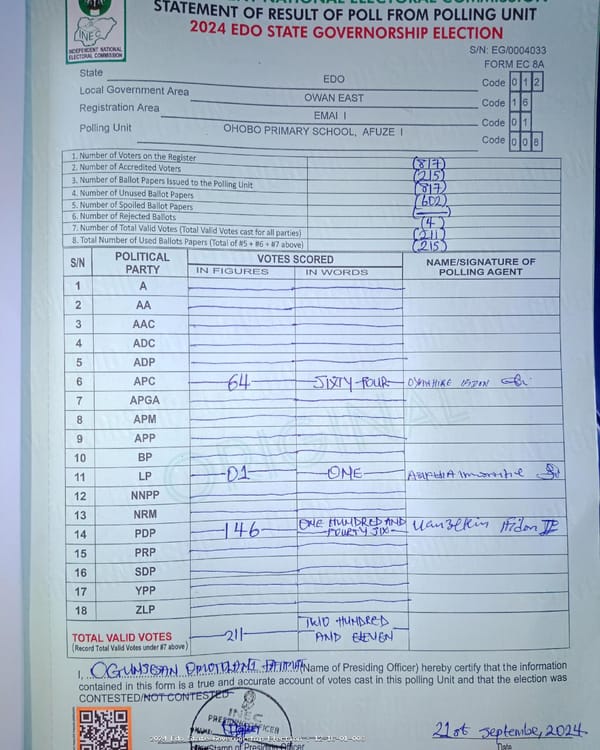 INEC
INDEPENDENT NATIONAL
ELECTORAL COMMISSION
STATEMENT OF RESULT OF POLL FROM POLLING UNIT
2024 EDO STATE GOVERNORSHIP ELECTION
S/N: EG/0004033
FORM EC 8A
State EDO Code 0 1 2
Local Government Area OWAN EAST Code 1 6
Registration Area EMAI I Code 0 1
Polling Unit OHOBO PRIMARY SCHOOL, AFUZE I Code 0 0 8
1. Number of Voters on the Register (817)
2. Number of Accredited Voters (215)
3. Number of Ballot Papers Issued to the Polling Unit (817)
4. Number of Unused Ballot Papers (602)
5. Number of Spoiled Ballot Papers
6. Number of Rejected Ballots (4)
7. Number of Total Valid Votes (Total Valid Votes cast for all parties) (211)
8. Total Number of Used Ballots Papers (Total of #5 + #6 + #7 above) (215)
S/N POLITICAL PARTY VOTES SCORED NAME/SIGNATURE OF POLLING AGENT
IN FIGURES IN WORDS
1 A
2 AA
3 AAC
4 ADC
5 ADP
6 APC 64 SIXTY-FOUR
7 APGA
8 APM
9 APP
10 BP
11 LP 01 ONE
12 NNPP
13 NRM
14 PDP 146 ONE HUNDRED AND FOURTY SIX
15 PRP
16 SDP
17 YPP
18 ZLP
ORIGINAL
TOTAL VALID VOTES 211 TWO HUNDRED AND ELEVEN
(Record Total Valid Votes under #7 above)
I, (Name of Presiding Officer) hereby certify that the information
contained in this form is a true and accurate account of votes cast in this polling Unit and that the election was
CONTESTED/NOT CONTESTED
INEC
PRESIDING OFFICER
21st September, 2024
Stamp of Presiding Officer
Date